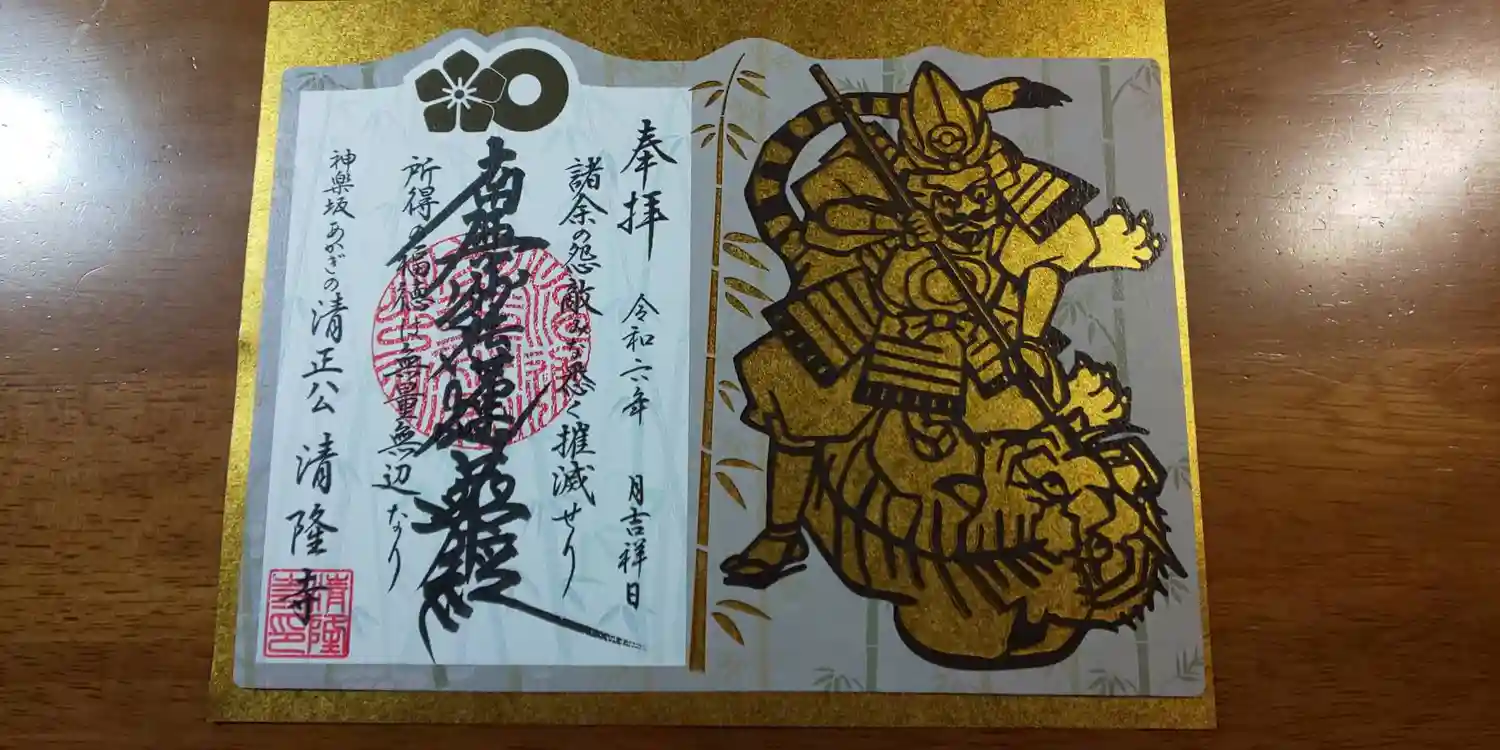 奉拝 令和六年 月吉祥日
諸余の怨敵みな悉く摧滅せり
南無妙法蓮華経
所得の福徳は無量無辺なり
神楽坂あかぎの清正公 清隆寺
清隆